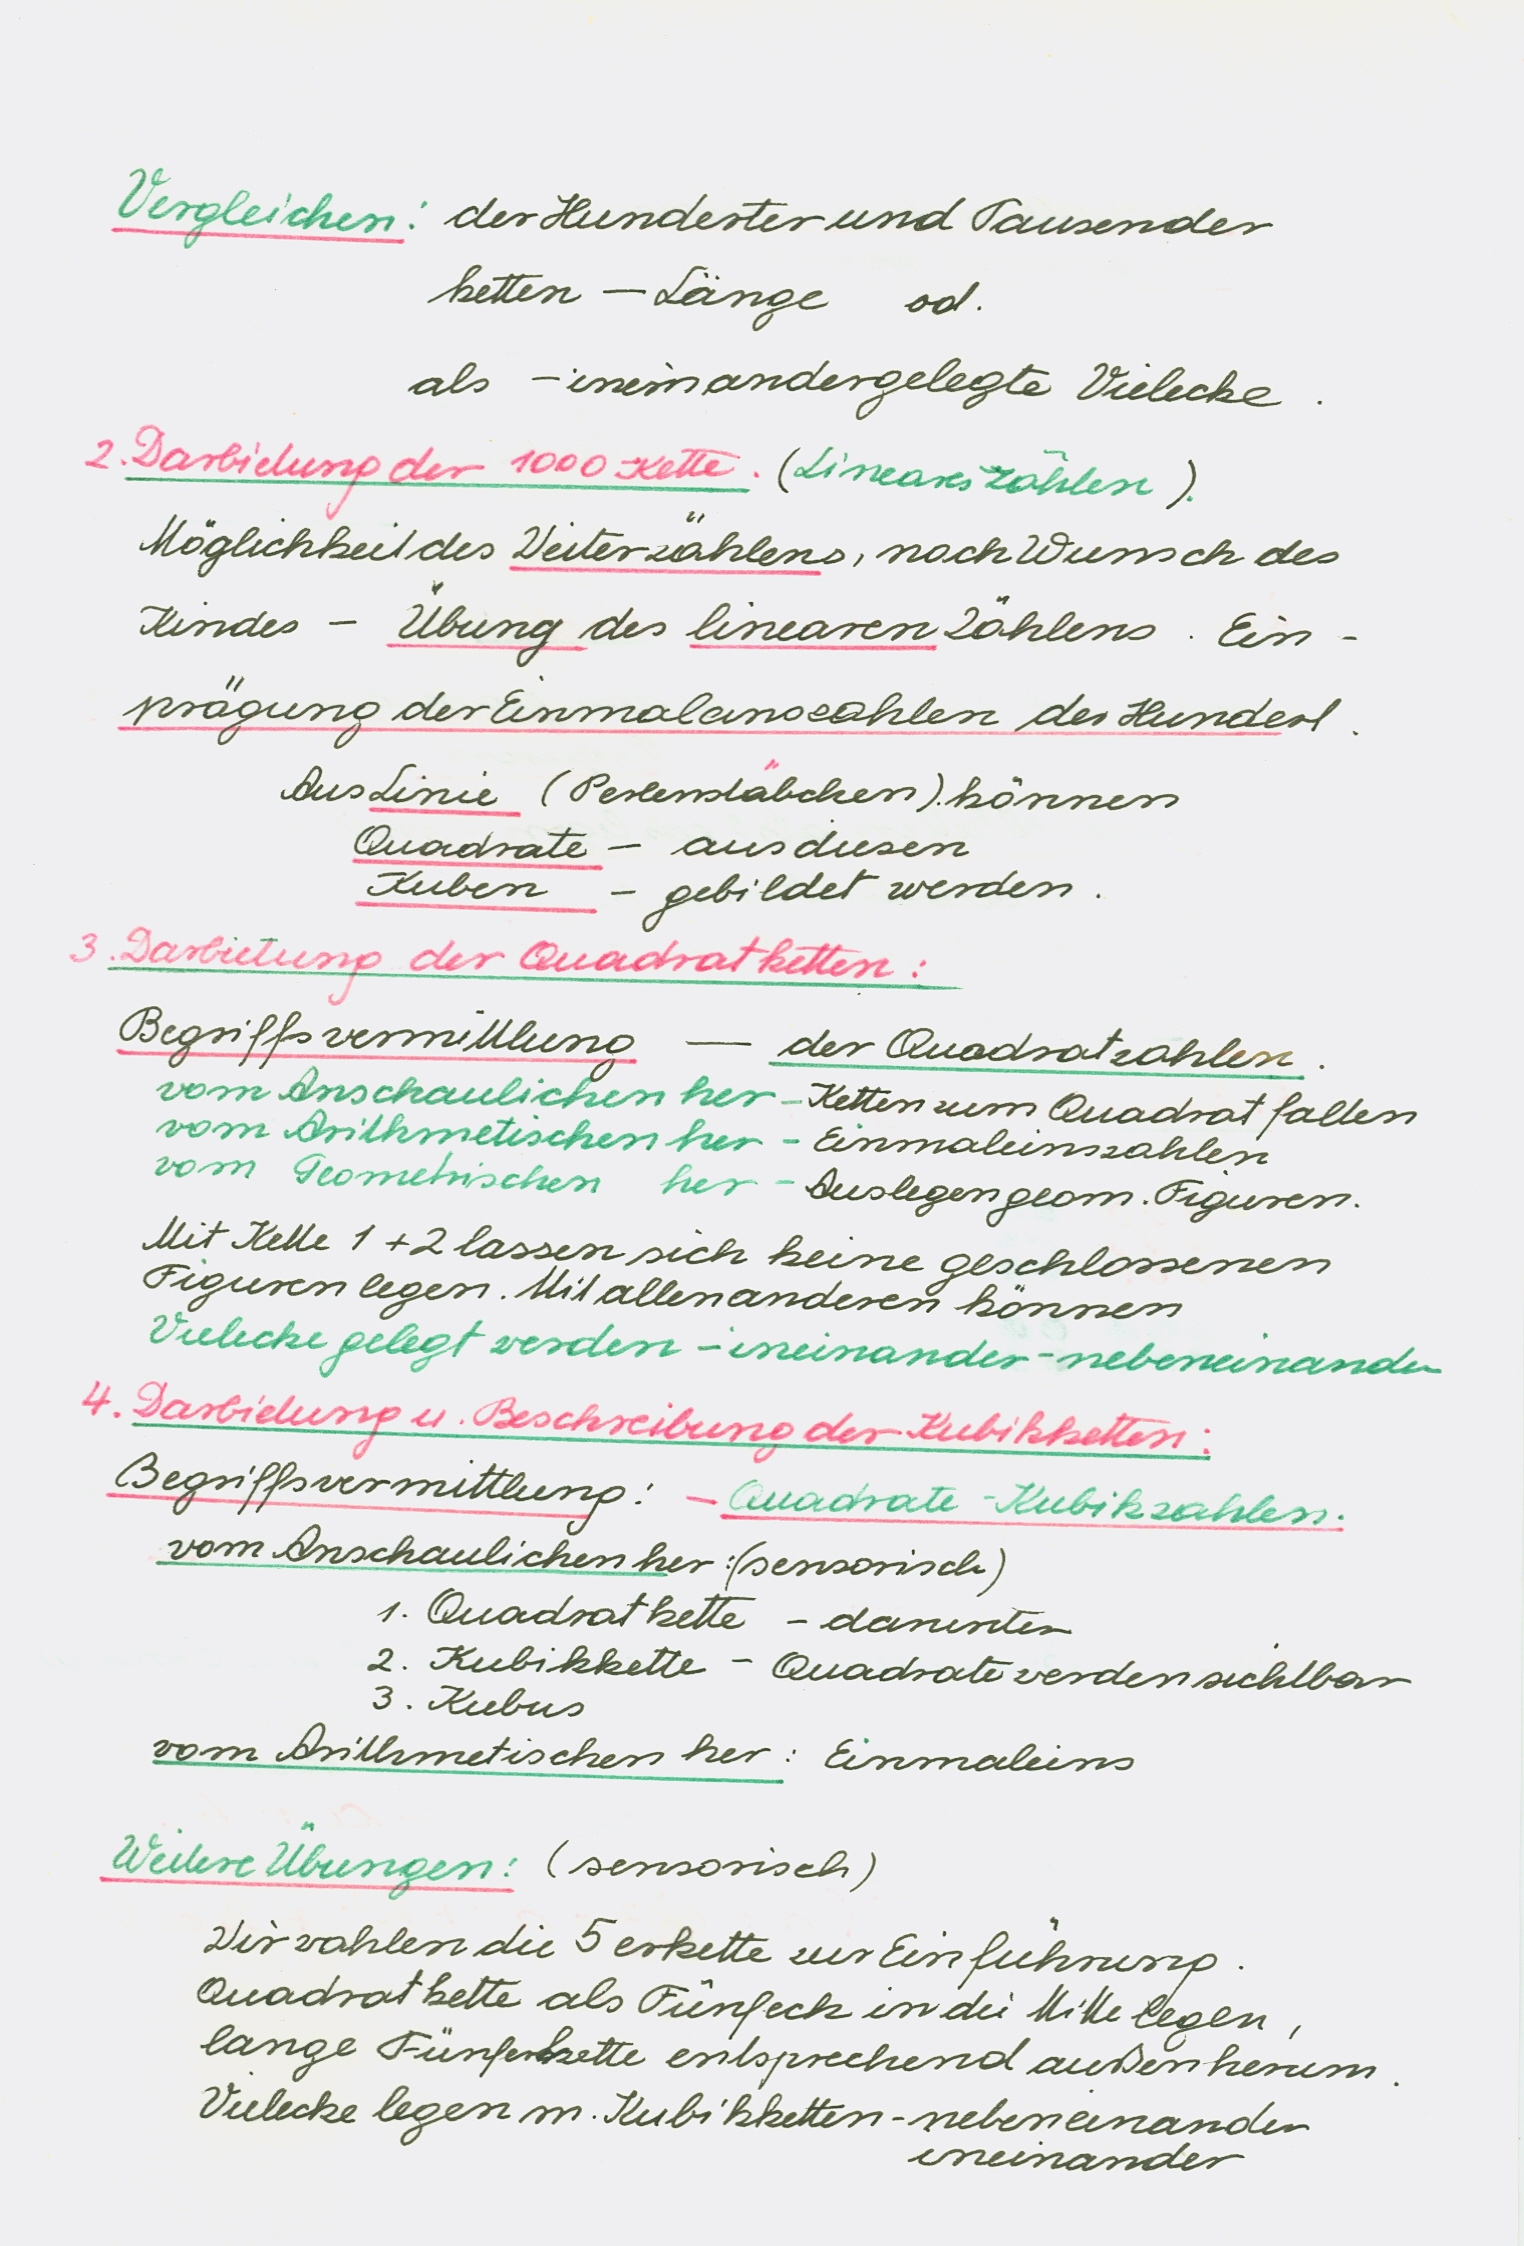 Vergleichen: der Hunderter und Tausender
ketten – Länge od.
als – ineinandergelegte Vielecke.
2. Darbietung der 1000 Kette. (Lineares Zählen).
Möglichkeit des Weiterzählens, nach Wunsch des
Kindes – Übung des linearen Zählens. Ein-
prägung der Einmaleinszahlen der Hundert.
Aus Linie (Perlenstäbchen) können
Quadrate – aus diesen
Kuben – gebildet werden.
3. Darbietung der Quadratketten:
Begriffsvermittlung — der Quadratzahlen.
vom Anschaulichen her – Ketten zum Quadrat falten
vom Arithmetischen her – Einmaleinszahlen
vom Geometrischen her – Auslegen geom. Figuren.
Mit Kette 1+2 lassen sich keine geschlossenen
Figuren legen. Mit allen anderen können
Vielecke gelegt werden – ineinander – nebeneinander
4. Darbietung u. Beschreibung der Kubikketten:
Begriffsvermittlung: – Quadrate – Kubikzahlen.
vom Anschaulichen her: (sensorisch)
1. Quadratkette – darunter
2. Kubikkette – Quadrate werden sichtbar
3. Kubus
vom Arithmetischen her: Einmaleins
Weitere Übungen: (sensorisch)
Wir wahlen die 5 erkette zur Einführung.
Quadratkette als Fünfeck in die Mitte legen,
lange Fünferkette entsprechend außenherum.
Vielecke legen m. Kubikketten – nebeneinander
ineinander